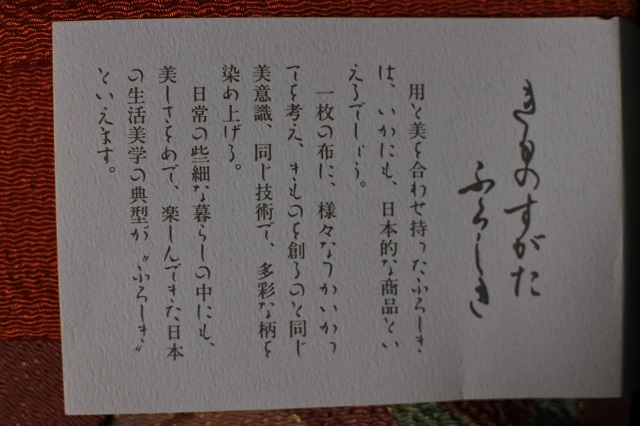 きものすがた
ふろしき
用と美を合わせ持ったふろしき
は、いかにも、日本的な商品とい
えるでしょう。
一枚の布に、様々なつかいかつ
てを考え、きものを創るのと同じ
美意識、同じ技術で、多彩な柄を
染め上げる。
日常の些細な暮らしの中にも、
美しさをめで、楽しんできた日本
の生活美学の典型が〝ふろしき〟
といえます。